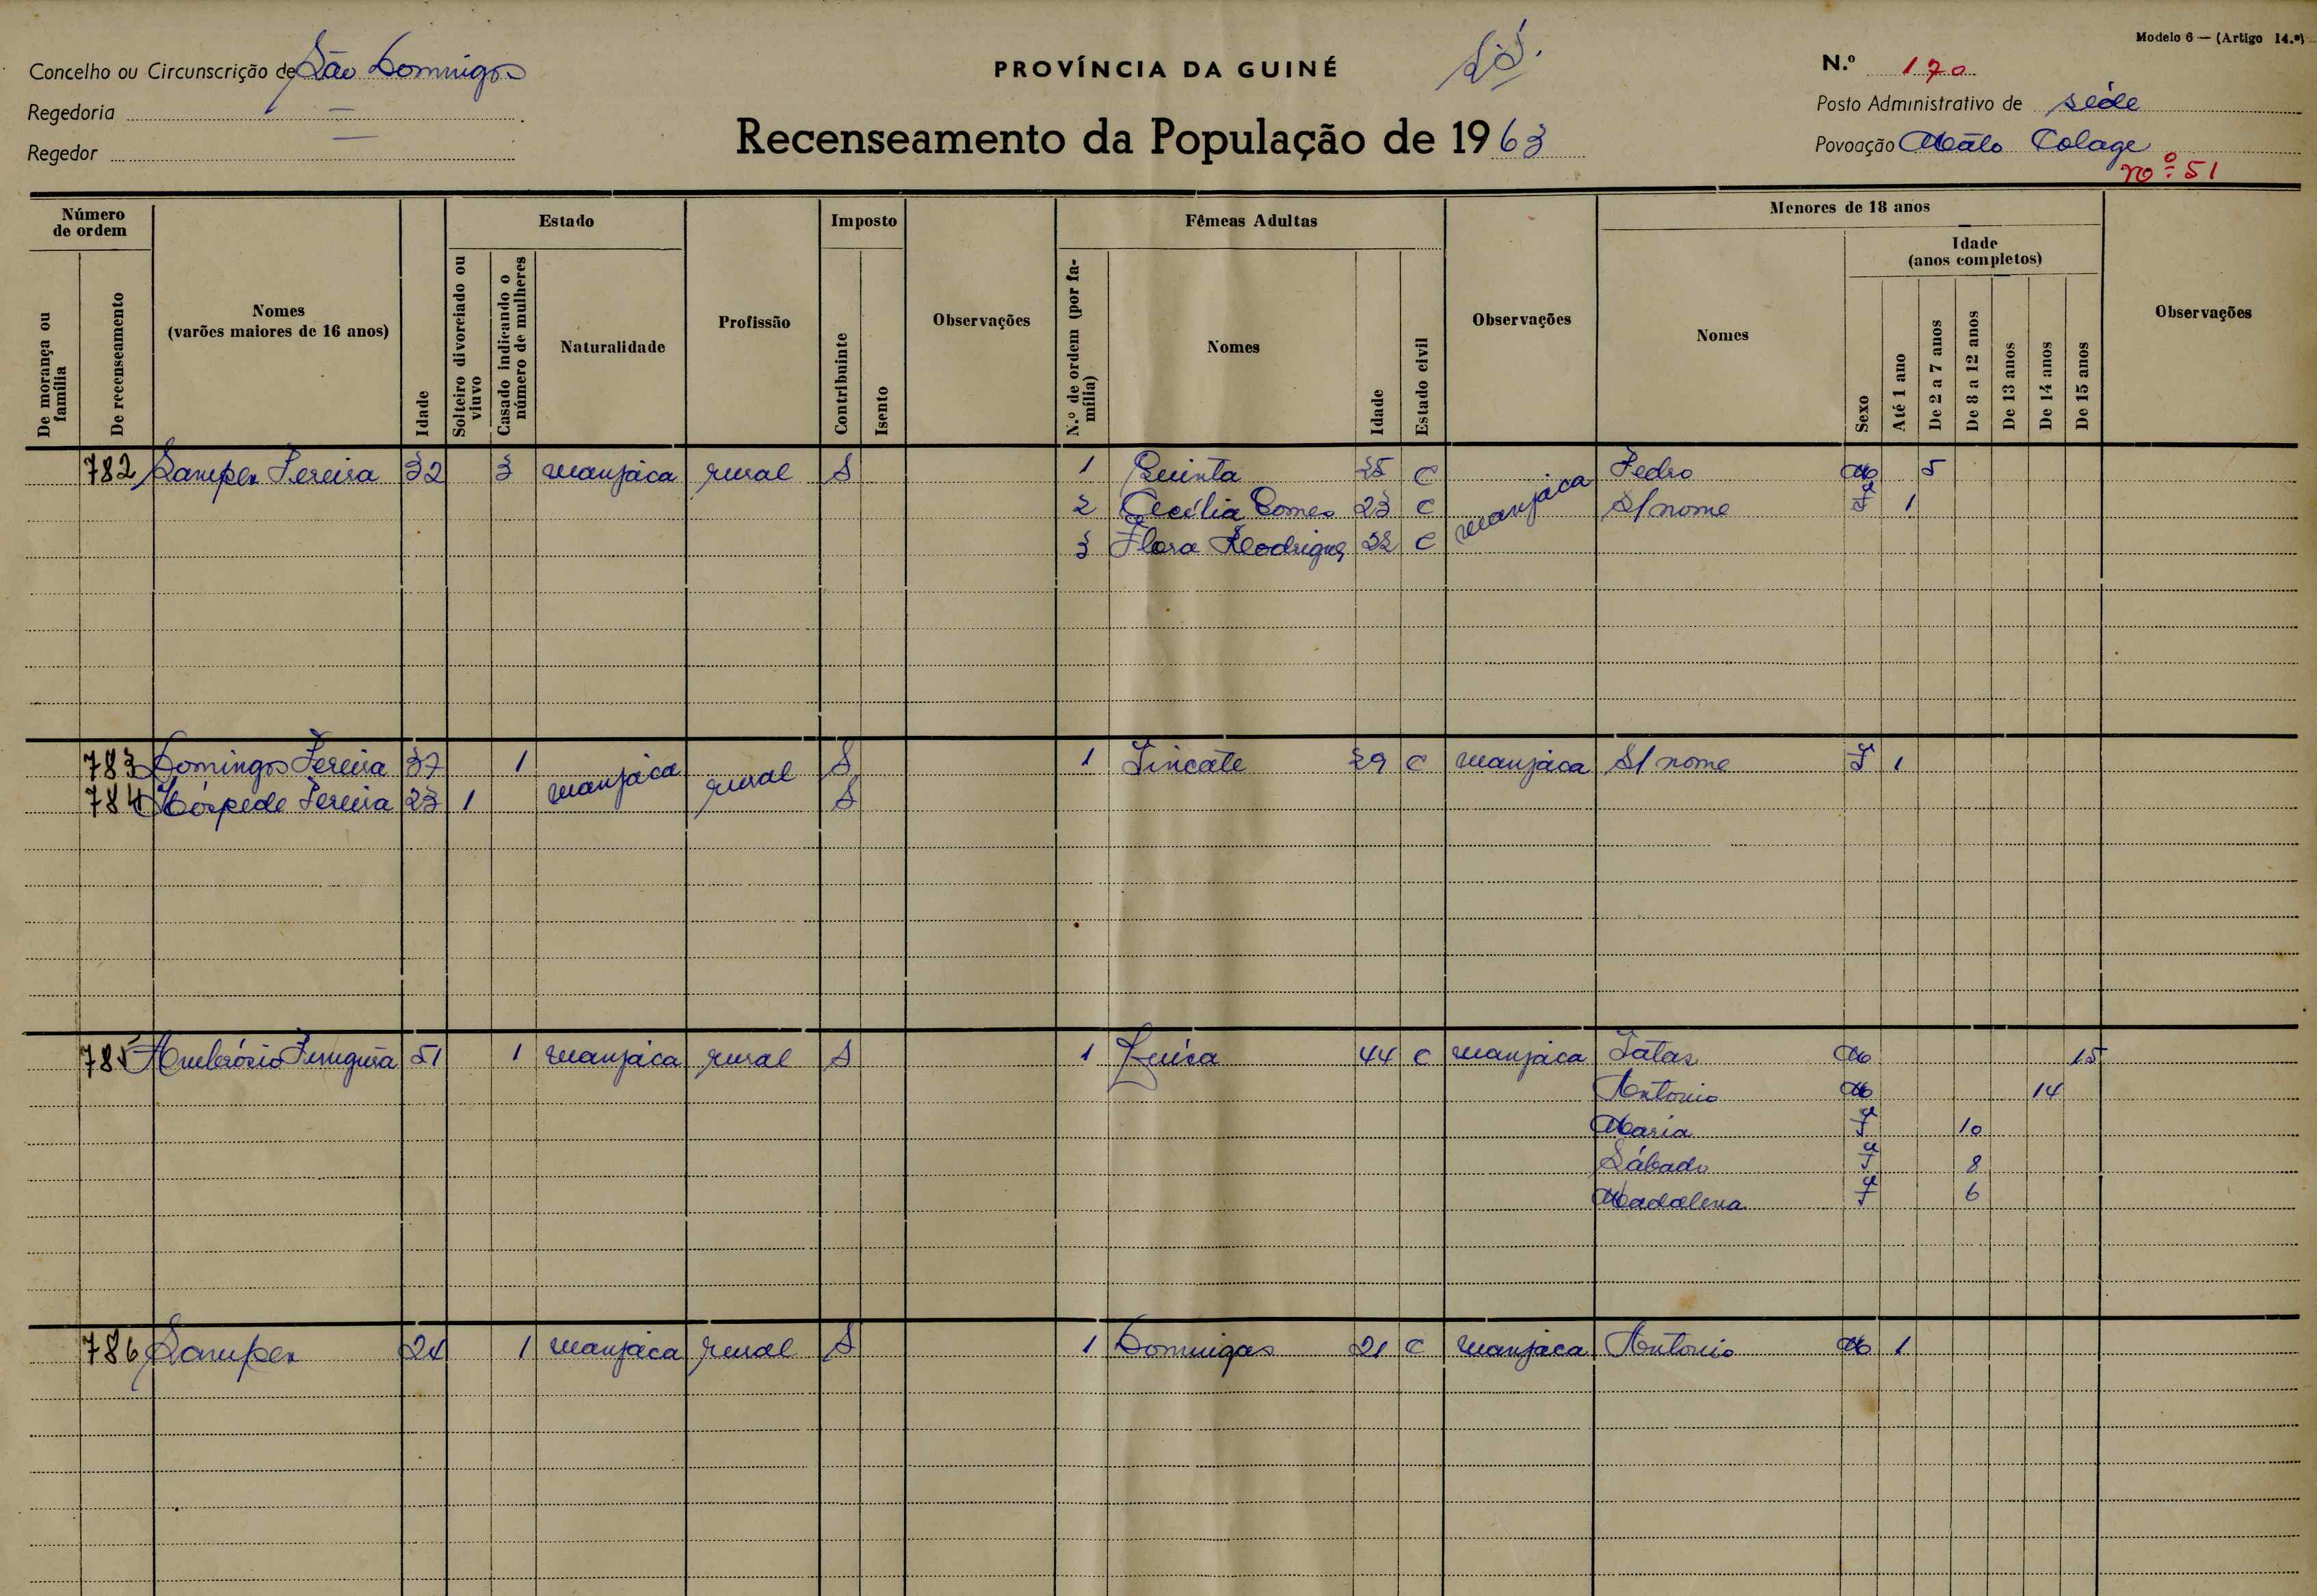 Modelo 6 — (Artigo 14.º)
Concelho ou Circunscrição de São Domingos
PROVÍNCIA DA GUINÉ
N.º 170
Regedoria —
Posto Administrativo de séde
Regedor —
Recenseamento da População de 1963
Povoação Mato Colage
nº 51
Número de ordem
De morança ou família
De recenseamento
Nomes (varões maiores de 16 anos)
Idade
Estado
Solteiro divorciado ou viuvo
Casado indicando o número de mulheres
Naturalidade
Profissão
Imposto
Contribuinte
Isento
Observações
Fêmeas Adultas
N.º de ordem (por família)
Nomes
Idade
Estado civil
Observações
Menores de 18 anos
Nomes
Idade (anos completos)
Sexo
Até 1 ano
De 2 a 7 anos
De 8 a 12 anos
De 13 anos
De 14 anos
De 15 anos
Observações
782 Pereira 32 3 manjaca rural S 1 Quinta 25 C manjaca Pedro M 5
2 Cecília Gomes 23 C S/ nome F 1
3 Flora Rodrigues 22 C
783 Domingos Pereira 37 1 manjaca rural S 1 29 C manjaca S/ nome F 1
784 Hóspede Pereira 23 1 S
785 Ambrósio 51 1 manjaca rural S 1 44 C manjaca M 15
Antonio M 14
Maria F 10
Sábado F 8
Madalena F 6
786 24 1 manjaca rural S 1 Domingas 21 C manjaca Antonio M 1